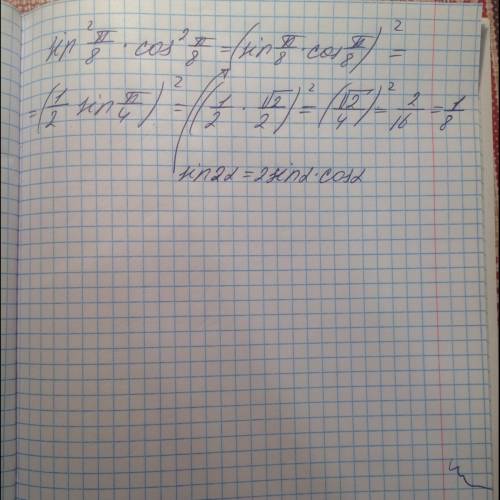 sin² π/8 · cos² π/8 = (sin π/8 · cos π/8)² =
= (1/2 sin π/4)² = (1/2 · √2/2)² = (√2/4)² = 2/16 = 1/8
sin2α = 2sinα · cosα